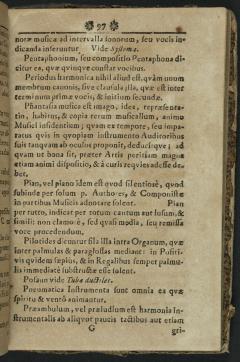 97
notæ musicæ ad intervalla sonorum, seu vocis in-
dicanda inseruntur Vide Systema.
Pentaphonium, seu compositio Pentaphona di-
citur ea, quæ quinque constat vocibus.
Periodus harmonica nihil aliud est, quàm unum
membrum canonis, sive clausula illa, quæ est inter
terminum primæ vocis, & initium secundæ.
Phantasia musica est imago, idea, repræsenta-
tio, habitus, & copia rerum musicalium, animo
Musici insidentium; quam ex tempore, seu impa-
ratus quis in quopiam instrumento Auditoribus
suis tanquam ab oculos proponit, deducitque; ad
quam ut bona sit, præter Artis peritiam magna
etiam animi dispositio, & à curis requies adesse de-
bet.
Pian, vel piano idem est quod silentiosè, quod
subinde per solum p. Authores, & Componistæ
in partibus Musicis adnotare solent. Pian
per tutto, indicat per totum cantum aut lusum, &
simili: non clamosè, sed quasi modia, seu remissa
voce procedendum.
Pilotides dicuntur fila illa intra Organum, quæ
inter palmulas & paraglossas mediant: in Positi-
vis quidem sæpius, & in Regalibus semper palmu-
lis immediatè substructæ esse solent.
Posaun vide Tuba ductilis.
Pneumatica Instrumenta sunt omnia ea quæ
spiritu & ventò animantur.
Præambulum, vel præludium est harmonia In-
strumentalis ab aliquot paucis tactibus aut etiam
G
gri-